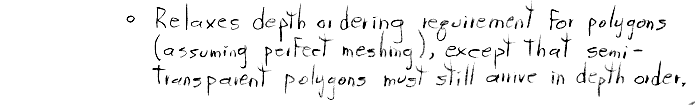 ○ Relaxes depth ordering requirement for polygons
(assuming perfect meshing), except that semi-
transparent polygons must still arrive in depth order.